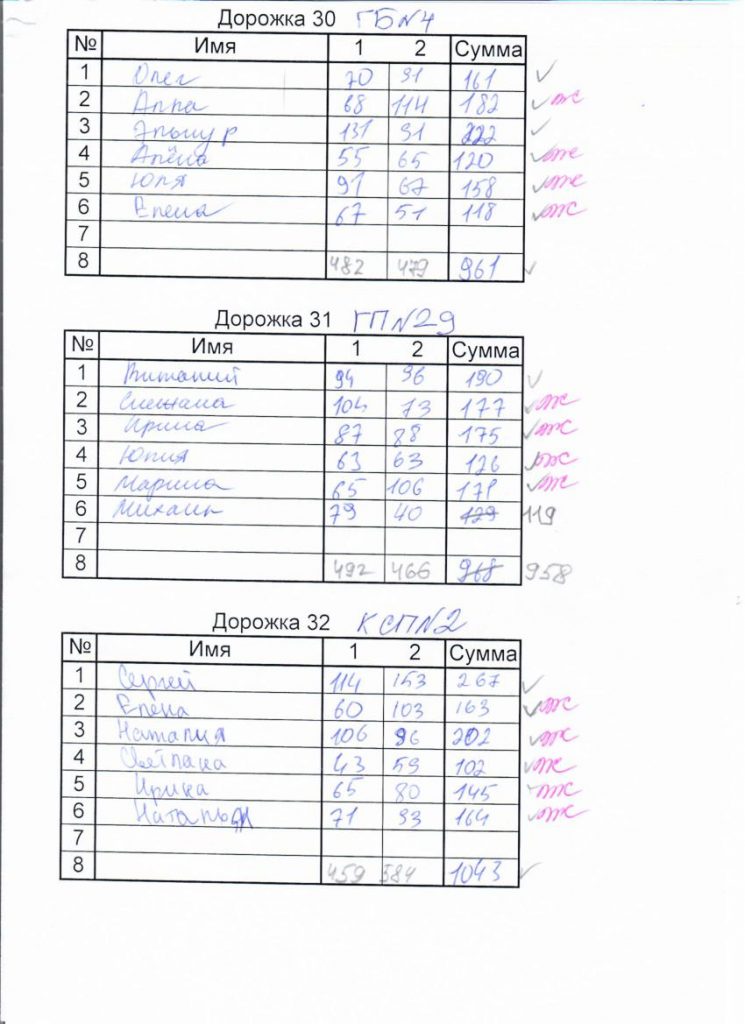 Дорожка 30 ГБ№4
№ Имя 1 2 Сумма
1 Олег 70 91 161
2 Анна 68 114 182 ж
3 Эльнур 131 91 222
4 Алёна 55 65 120 ж
5 Юля 91 67 158 ж
6 Елена 67 51 118 ж
7
8 482 479 961
Дорожка 31 ГП№29
№ Имя 1 2 Сумма
1 Виталий 94 96 190
2 Снежана 104 73 177 ж
3 Ирина 87 88 175 ж
4 Юлия 63 63 126 ж
5 Марина 65 106 171 ж
6 Михаил 79 40 129 119
7
8 492 466 968 958
Дорожка 32 КСП№2
№ Имя 1 2 Сумма
1 Сергей 114 153 267
2 Елена 60 103 163 ж
3 Наталия 106 96 202 ж
4 Светлана 43 59 102 ж
5 Ирина 65 80 145 ж
6 Наталья 71 93 164 ж
7
8 459 584 1043